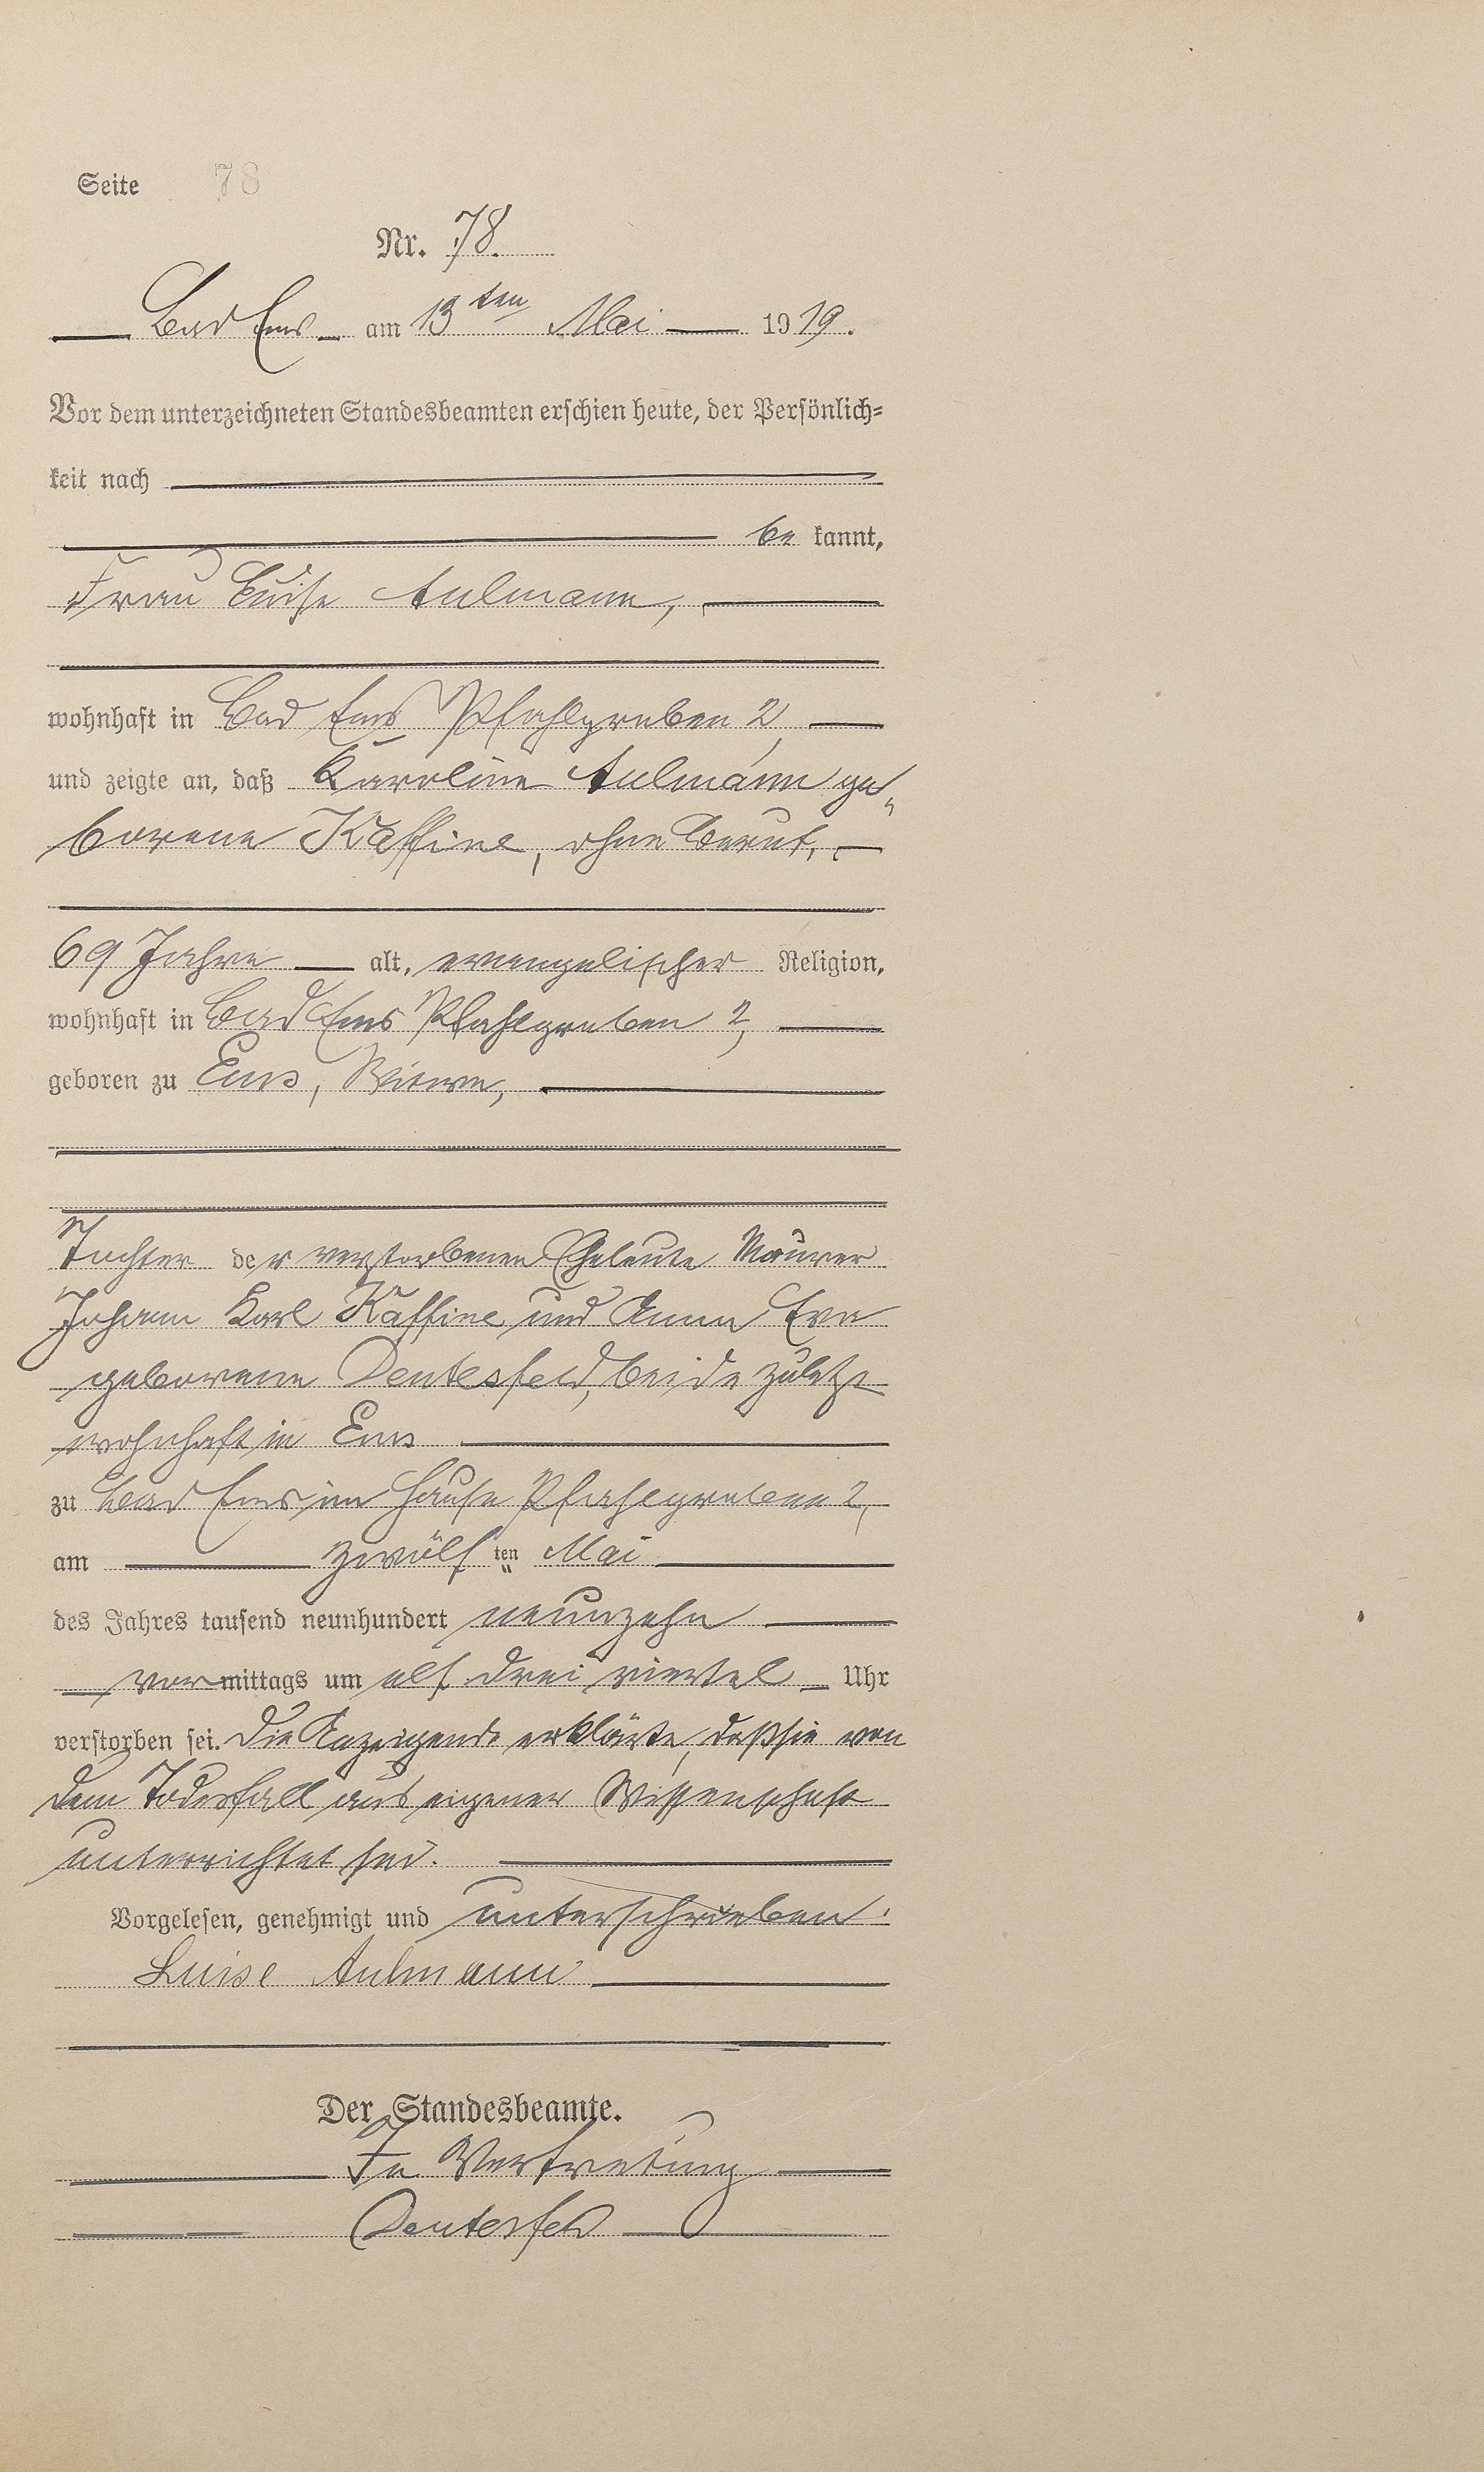 Seite 78
Nr. 78.
Bad Ems am 13ten Mai 1919.
Vor dem unterzeichneten Standesbeamten erschien heute, der Persönlich-
keit nach
be kannt,
Frau Luise Aulmann,
wohnhaft in Bad Ems Pfahlgraben 2,
und zeigte an, daß Karoline Aulmann ge„
borene Kaffine, ohne Beruf,
69 Jahre alt, evangelischer Religion,
wohnhaft in Bad Ems Pfahlgraben 2,
geboren zu Ems, Witwe,
Tochter der verstorbenen Eheleute Maurer
Johann Karl Kaffine und Anna Eva
geborene Deutesfeld, beide zuletzt
wohnhaft in Ems
zu Bad Ems im Hause Pfahlgraben 2,
am zwölf ten Mai
des Jahres tausend neunhundert neunzehn
vor mittags um elf drei viertel Uhr
verstorben sei. Die Anzeigende erklärte, daß sie von
dem Todesfall aus eigener Wissenschaft
unterrichtet sei.
Vorgelesen, genehmigt und unterschrieben:
Luise Aulmann
Der Standesbeamte.
In Vertretung
Deutesfeld